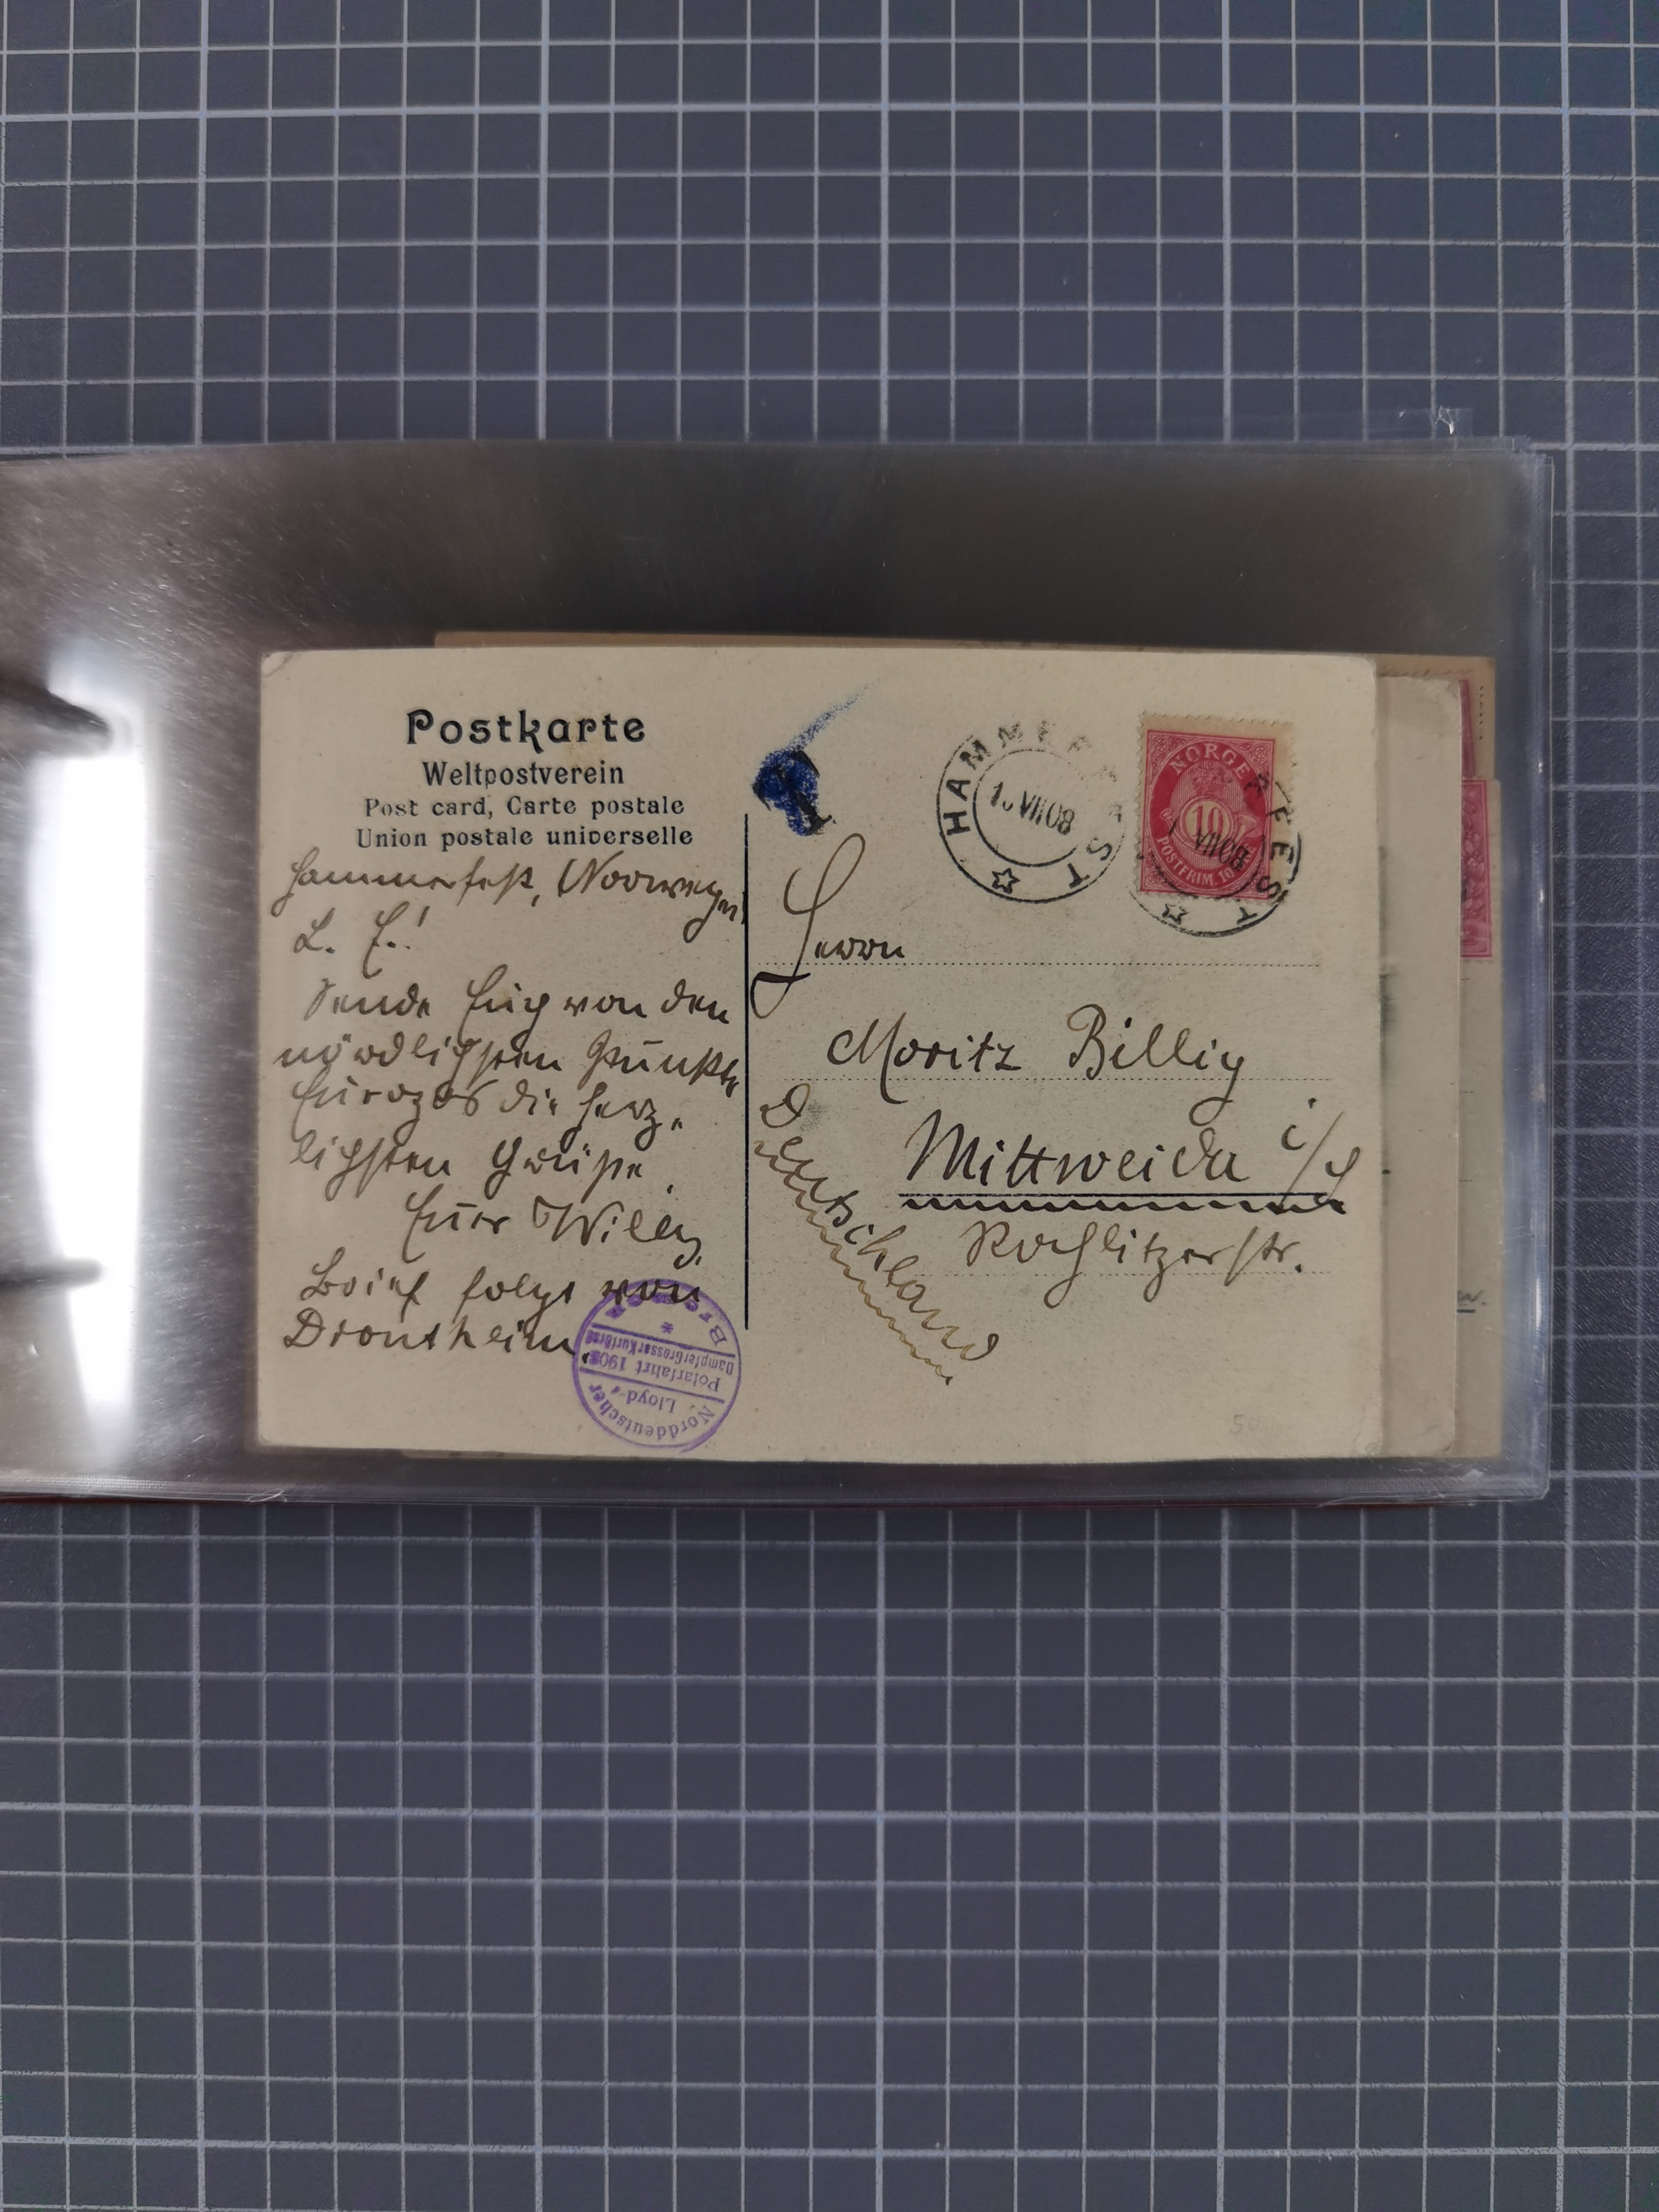 Postkarte
Weltpostverein
Post card, Carte postale
Union postale universelle
Hammerfest, Norwegen
L. E.!
Sende Euch von den
nördlichsten Punkte
Europas die herz-
lichsten Grüße.
Euer Willy.
Brief folgt von
Drontheim.
Norddeutscher
Lloyd
Polarfahrt 1908
Dampfer Grosser Kurfürst
Bremen
T
HAMMERFEST
VII 08
NORGE
10
POSTFRIM. 10
HAMMERFEST
VII 08
Herrn
Moritz Billig
Mittweida i/S
Rochlitzerstr.
Deutschland